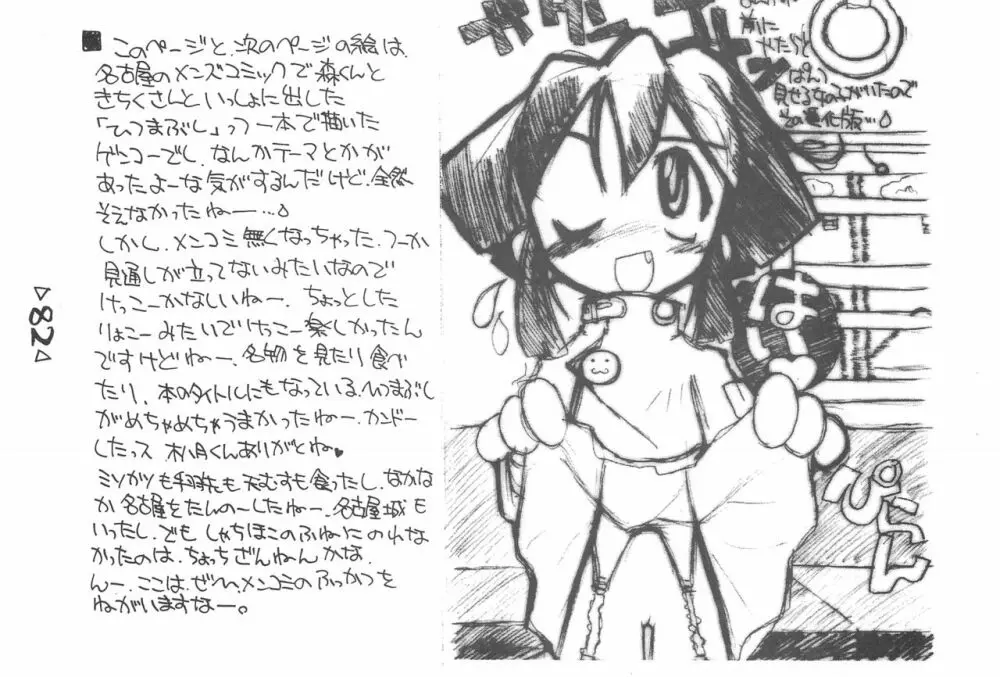 ■ このページと、次のページの絵は、
名古屋のメンズコミックで森くんと
きちくさんといっしょに出した
「ひつまぶし」って本で描いた
ゲンコーでし、なんかテーマとかが
あったよーな気がするんだけど、全然
そえなかったねー…
しかし、メンコミ無くなっちゃった、つーか
見通しが立ってないみたいなので
けっこーかなしいねー、ちょっとした
りょこーみたいでけっこー楽しかったん
ですけどねー、名物を見たり食べ
たり、本のタイトルにもなっている、ひつまぶし
がめちゃめちゃうまかったねー、カンドー
したっス 秋月くんありがとね♥
ミソカツも手羽先も天むすも食ったし、なかな
か名古屋をたんのーしたねー、名古屋城も
いったし、でも しゃちほこのふねに のれな
かったのは、ちょっちざんねんかな、
んー、ここは、ぜひメンコミのふっかつを
ねがいますなー。
82
前に
ぱんつ
見せる女の子がいたので
その進化版…
ぴらし